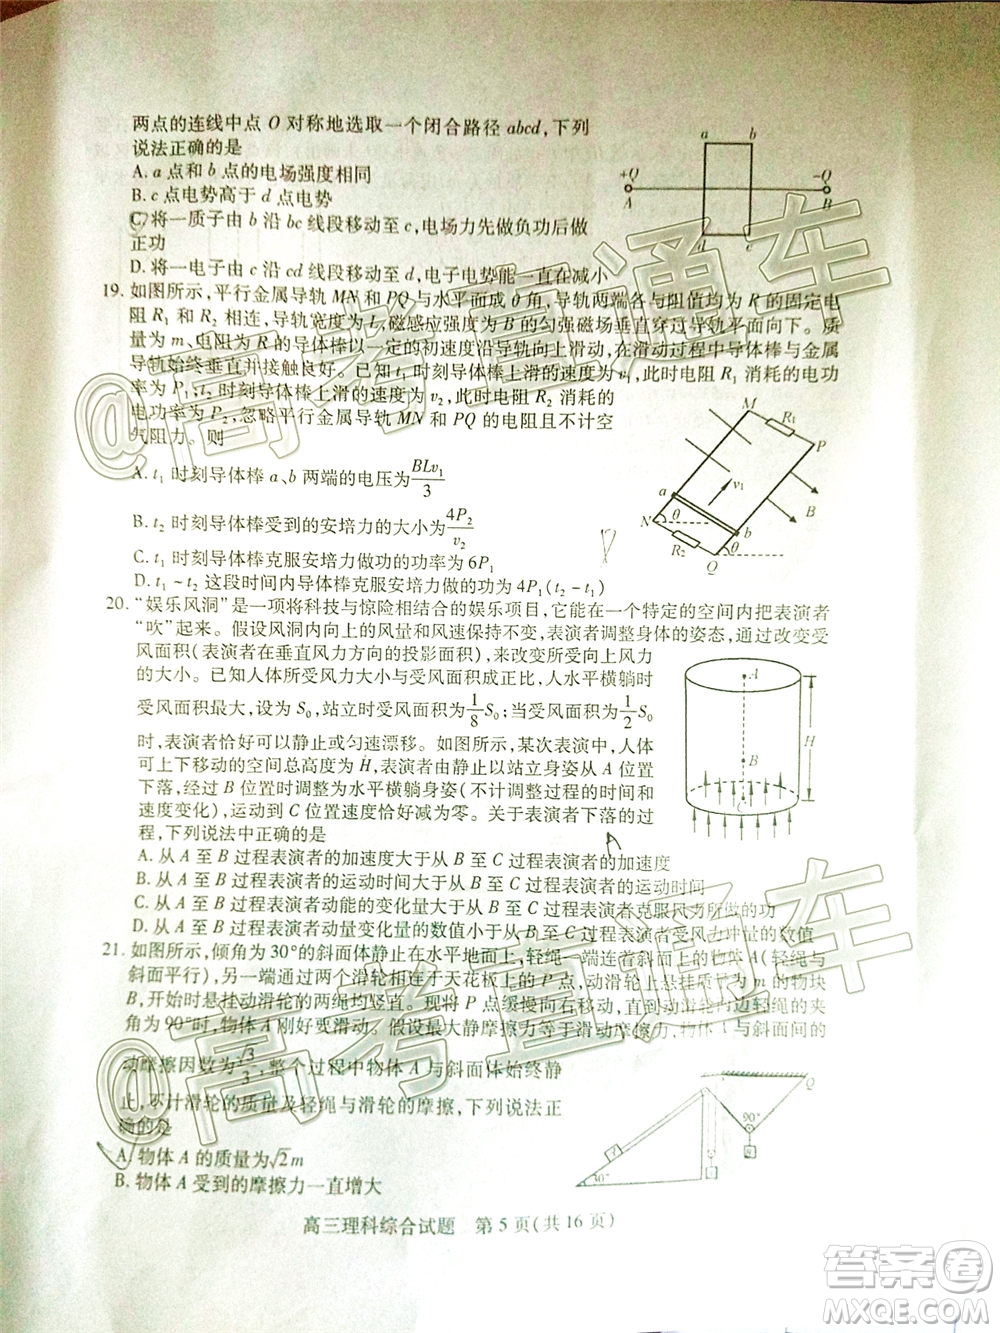 两点的连线中点 O 对称地选取一个闭合路径 abcd,下列
说法正确的是
A. a 点和 b 点的电场强度相同
B. c 点电势高于 d 点电势
C. 将一质子由 b 沿 bc 线段移动至 c,电场力先做负功后做
正功
D. 将一电子由 c 沿 cd 线段移动至 d,电子电势能一直在减小
a b
+Q -Q
A B
d c
19. 如图所示,平行金属导轨 MN 和 PQ 与水平面成 θ 角,导轨两端各与阻值均为 R 的固定电
阻 R₁ 和 R₂ 相连,导轨宽度为 L,磁感应强度为 B 的匀强磁场垂直穿过导轨平面向下。质
量为 m、电阻为 R 的导体棒以一定的初速度沿导轨向上滑动,在滑动过程中导体棒与金属
导轨始终垂直并接触良好。已知 t₁ 时刻导体棒上滑的速度为 v₁,此时电阻 R₁ 消耗的电功
率为 P₁,t₂ 时刻导体棒上滑的速度为 v₂,此时电阻 R₁ 消耗的
电功率为 P₂,忽略平行金属导轨 MN 和 PQ 的电阻且不计空
气阻力。则
A. t₁ 时刻导体棒 a、b 两端的电压为 BLv₁/3
B. t₂ 时刻导体棒受到的安培力的大小为 4P₂/v₂
C. t₁ 时刻导体棒克服安培力做功的功率为 6P₁
D. t₁ ~ t₂ 这段时间内导体棒克服安培力做的功为 4P₁(t₂ − t₁)
M R₁ P
a v₁ B
N θ b
R₂ θ
Q
20. “娱乐风洞”是一项将科技与惊险相结合的娱乐项目,它能在一个特定的空间内把表演者
“吹”起来。假设风洞内向上的风量和风速保持不变,表演者调整身体的姿态,通过改变受
风面积(表演者在垂直风力方向的投影面积),来改变所受向上风力
的大小。已知人体所受风力大小与受风面积成正比,人水平横躺时
受风面积最大,设为 S₀,站立时受风面积为 1/8 S₀;当受风面积为 1/2 S₀
时,表演者恰好可以静止或匀速漂移。如图所示,某次表演中,人体
可上下移动的空间总高度为 H,表演者由静止以站立身姿从 A 位置
下落,经过 B 位置时调整为水平横躺身姿(不计调整过程的时间和
速度变化),运动到 C 位置恰好减为零。关于表演者下落的过
程,下列说法中正确的是
A. 从 A 至 B 过程表演者的加速度大于从 B 至 C 过程表演者的加速度
B. 从 A 至 B 过程表演者的运动时间大于从 B 至 C 过程表演者的运动时间
C. 从 A 至 B 过程表演者动能的变化量大于从 B 至 C 过程表演者克服风力所做的功
D. 从 A 至 B 过程表演者动量变化量的数值小于从 B 至 C 过程表演者受风力冲量的数值
A
H
B
C
21. 如图所示,倾角为 30°的斜面体静止在水平地面上,轻绳一端连着斜面上的物体 A(轻绳与
斜面平行),另一端通过两个滑轮相连于天花板上的 P 点,动滑轮上悬挂质量为 m 的物块
B,开始时悬挂动滑轮的两绳均竖直。现将 P 点缓慢向右移动,直到动滑轮两边轻绳的夹
角为 90°时,物体 A 刚好要滑动。假设最大静摩擦力等于滑动摩擦力,物体 A 与斜面间的
动摩擦因数为 √3/3,整个过程中物体 A 与斜面体始终静
止,不计滑轮的质量及轻绳与滑轮的摩擦,下列说法正
确的是
A. 物体 A 的质量为√2m
B. 物体 A 受到的摩擦力一直增大
Q
90°
30°
高三理科综合试题 第 5 页(共 16 页)
@高考直通车
@高考直通车
@高考直通车
答案卷
MXQE.COM